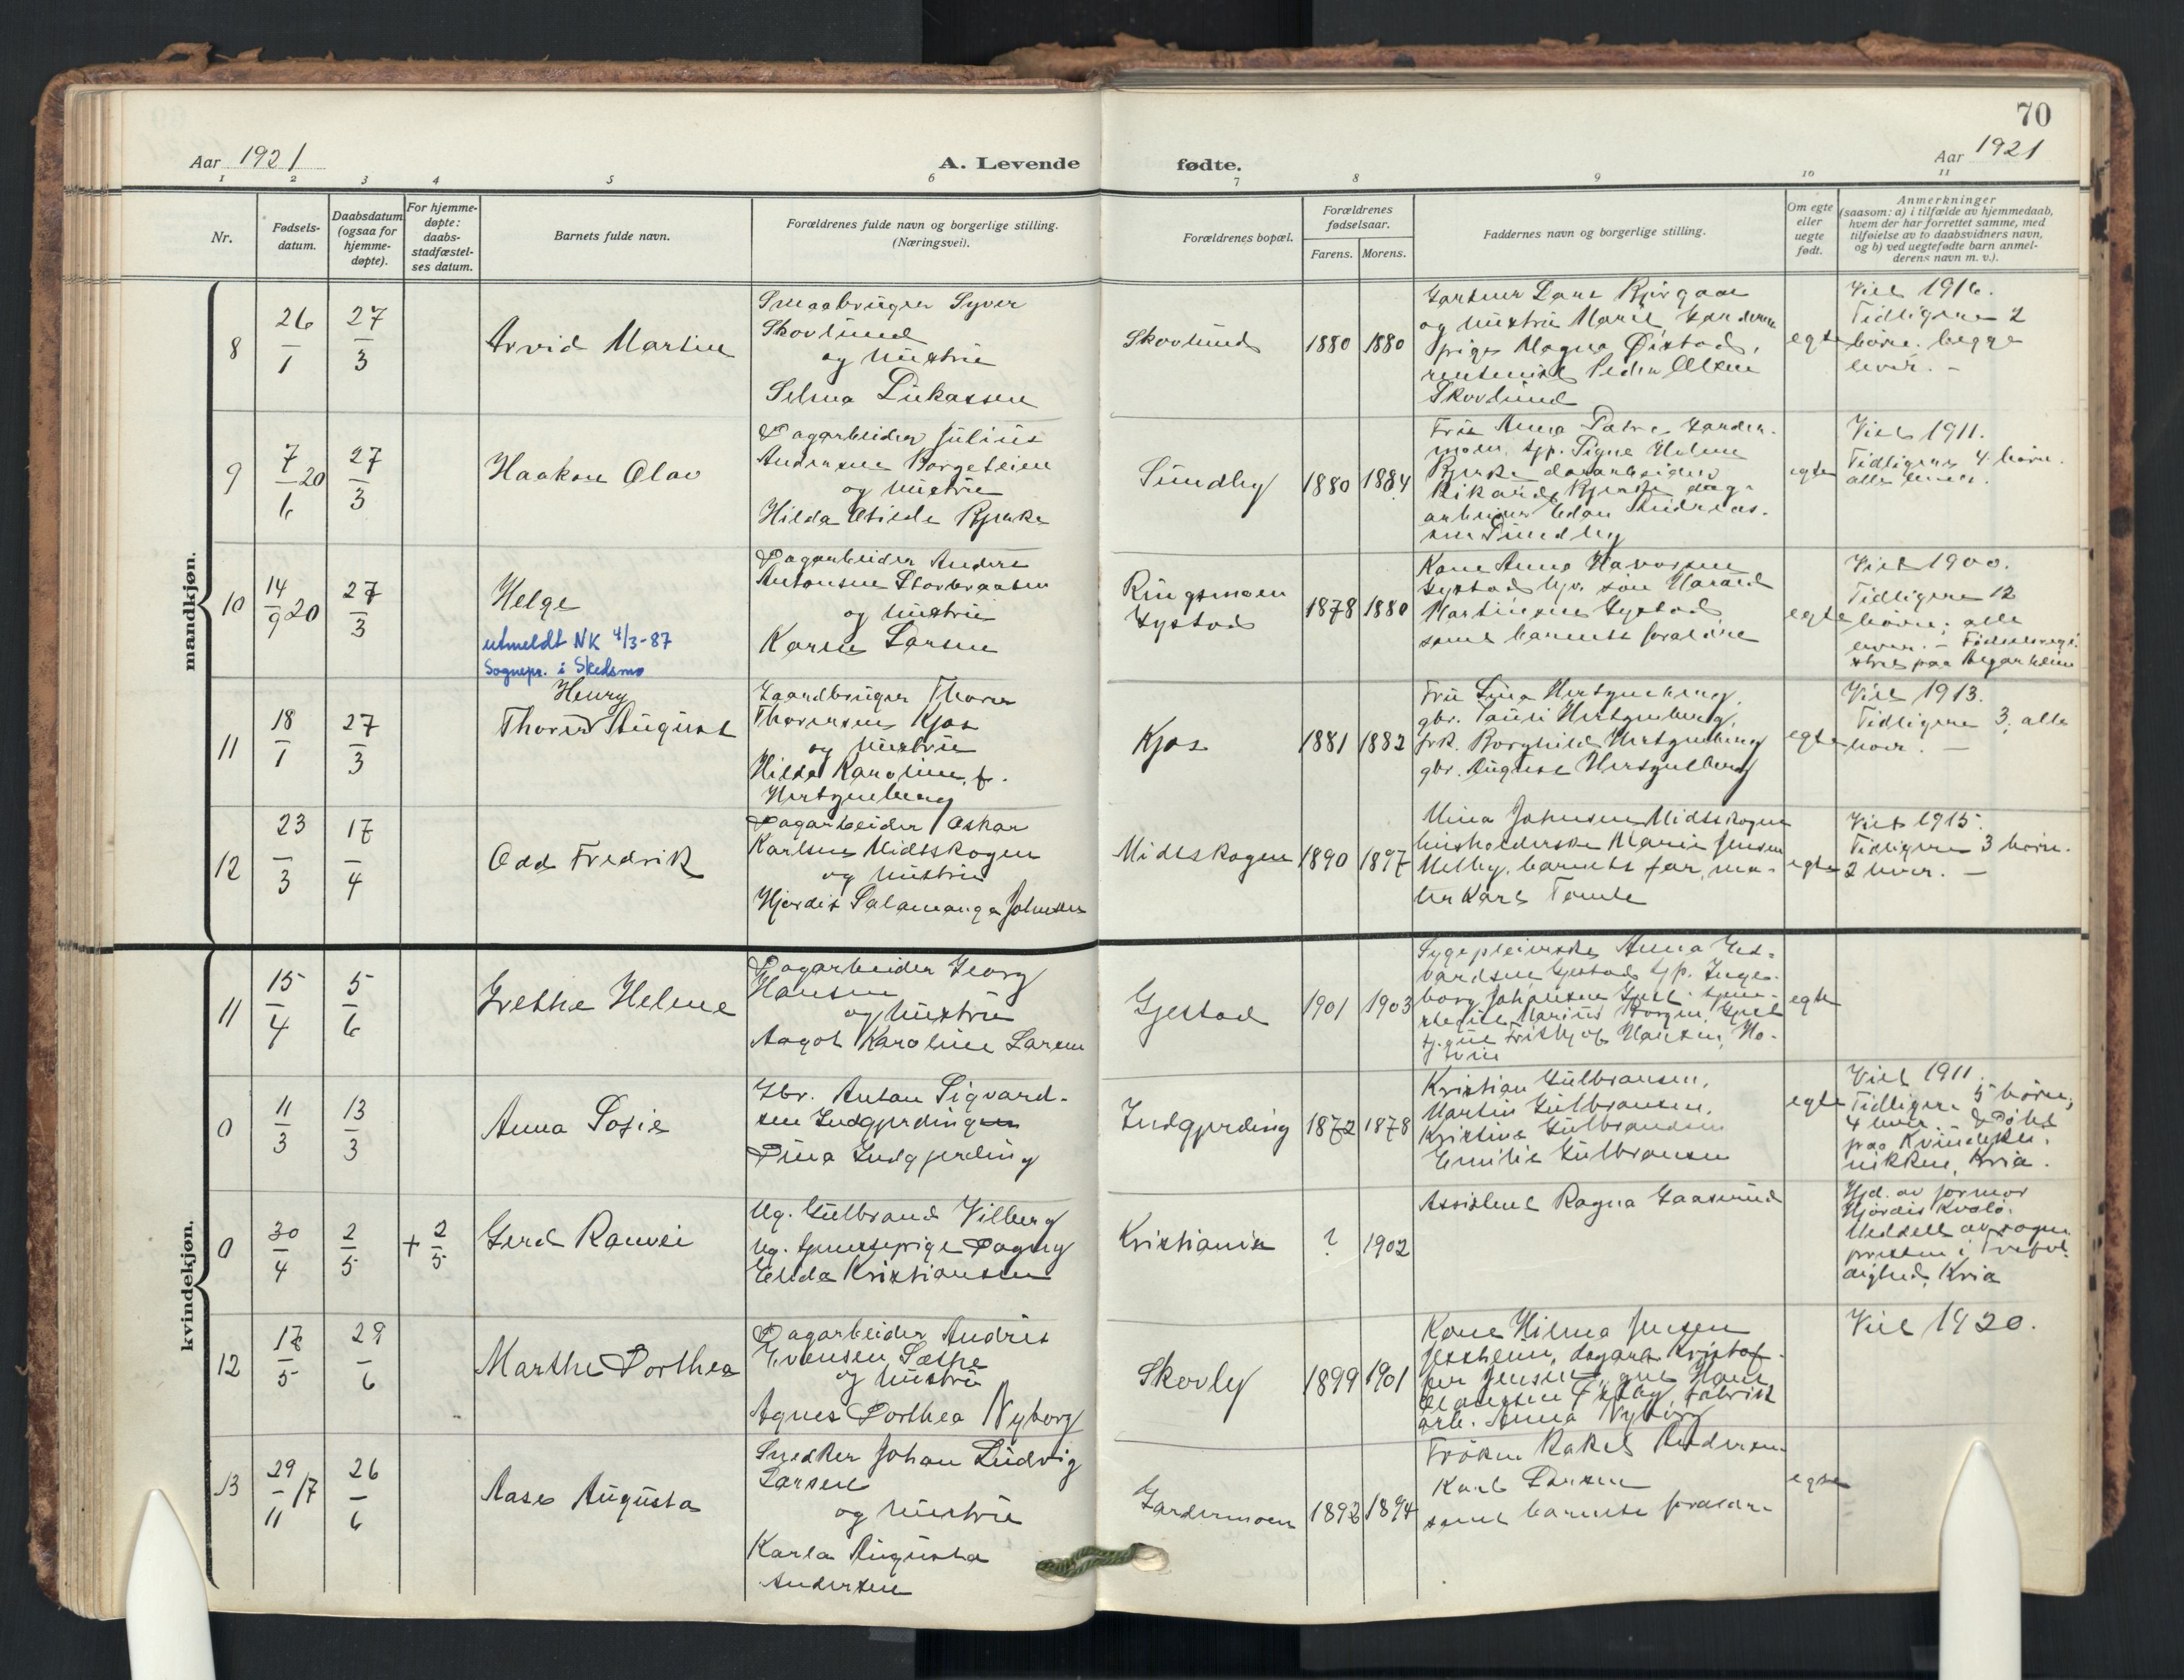 70
Aar 1921
A. Levende
fødte.
Aar 1921
1 2 3 4 5 6 7 8 9 10 11
Nr.
Fødsels-
datum.
Daabsdatum
(ogsaa for
hjemme-
døpte).
For hjemme-
døpte:
daabs-
stadfæstel-
ses datum.
Barnets fulde navn.
Forældrenes fulde navn og borgerlige stilling.
(Næringsvei).
Forældrenes bopæl.
Forældrenes
fødselsaar.
Farens. Morens.
Faddernes navn og borgerlige stilling.
Om egte
eller
uegte
født.
Anmerkninger
(saasom: a) i tilfælde av hjemmedaab,
hvem der har forrettet samme, med
tilføielse av to daabsvidners navn,
og b) ved uegtefødte barn anmel-
derens navn m. v.).
mandkjøn.
8
26/1
27/3
Arvid Martin
Smaabruger Syver
Skovlund
og hustru
Selma Lukassen
Skovlund
1880 1880
og hustru Marie
pige Magna Øistad,
Peder Olsen
Skovlund
egte
Viet 1916.
Tidligere 2
børn. begge
lever. –
9
7/6 20
27/3
Haakon Olav
Dagarbeider Julius
Andersen Borgeteien
og hustru
Hilda Otilde Bjerke
Sundby
1880 1884
Fru Anna
Signe Helene
Bjerke dagarbeider
Rikard Bjerke dag-
arbeider
sen Sundby
egte
Viet 1911.
Tidligere 4 børn.
alle lever.
10
14/9 20
27/3
Helge
utmeldt NK 4/3-87
Sognepr. i Skedsmo
Dagarbeider Anders
Antonsen Storbraaten
og hustru
Karen Larsen
Ringsmoen
Gystad
1878 1880
Kone Anna Halvorsen
Gystad søn Harald
Martinsen Gystad
samt barnets forældre
egte
Viet 1900.
Tidligere 12
børn; alle
lever. – Fødselsregi-
stret paa
11
18/1
27/3
Henry
Thorer August
Gaardbruger Thorer
Thoresen Kjos
og hustru
Hilda Karoline f.
Hertzenberg
Kjos
1881 1882
Fru Lina Hertzenberg,
gbr. Lauri Hertzenberg,
frk. Borghild Hertzenberg
gbr. August Hertzenberg
egte
Viet 1913.
Tidligere 3, alle
lever. –
12
23/3
17/4
Odd Fredrik
Dagarbeider Oskar
Karlsen Midtskogen
og hustru
Hjørdis Salamanga Johnsen
Midtskogen
1890 1897
Mina Johnsen Midtskogen
husholderske Marie Jensen
Melby, barnets far, ma-
ler Karl Tomte
egte
Viet 1915.
Tidligere 3 børn.
2 lever. –
kvindekjøn.
11
15/4
5/6
Grethe Helene
Dagarbeider Georg
Hansen
og hustru
Aagot Karoline Larsen
Gjestad
1901 1903
Sygepleierske Anna Ed-
vardsen Gjestad tjp. Inge-
borg Johansen
Marius Borgen
tj.gut Fritjof Hansen, Ho-
vin
egte
0
11/3
13/3
Anna Sofie
Gbr. Anton Sigvard-
sen Indgjerdingen
Dina Indgjerding
Indgjerding
1872 1878
Kristian Gulbransen,
Martin Gulbransen,
Kristine Gulbrandsen
Emilie Gulbransen
egte
Viet 1911.
Tidligere 5 børn,
4 lever. – Døbt
paa Kvindekli-
nikken, Kria.
0
30/4
2/5
+ 2/5
Gerd Ranvei
Ug. Gulbrand Vilberg
Ug. tjenestepige Dagny
Elida Kristiansen
Kristiania
? 1902
Assistent Ragna Gaaserud
Hjd. av jormor
Hjørdis Kvalø.
Meddelt av sogne-
presten i Trefol-
dighed, Kria
12
18/5
29/6
Marthe Dorthea
Dagarbeider Andres
Evensen Sæthe
og hustru
Agnes Dorthea Nyborg
Skovly
1899 1901
Kone Hilma Jensen
Jessheim, dagarb. Kristof-
fer Jensen, gut Hans
fabrik
arb. Anna Nyborg
Viet 1920.
13
29/11 17
26/6
Aase Augusta
Snedker Johan Ludvig
Larsen
og hustru
Karla Augusta
Andersen
Gardermoen
1892 1894
Frøken Rakel Andersen
Karl Larsen
samt barnets forældre
egte